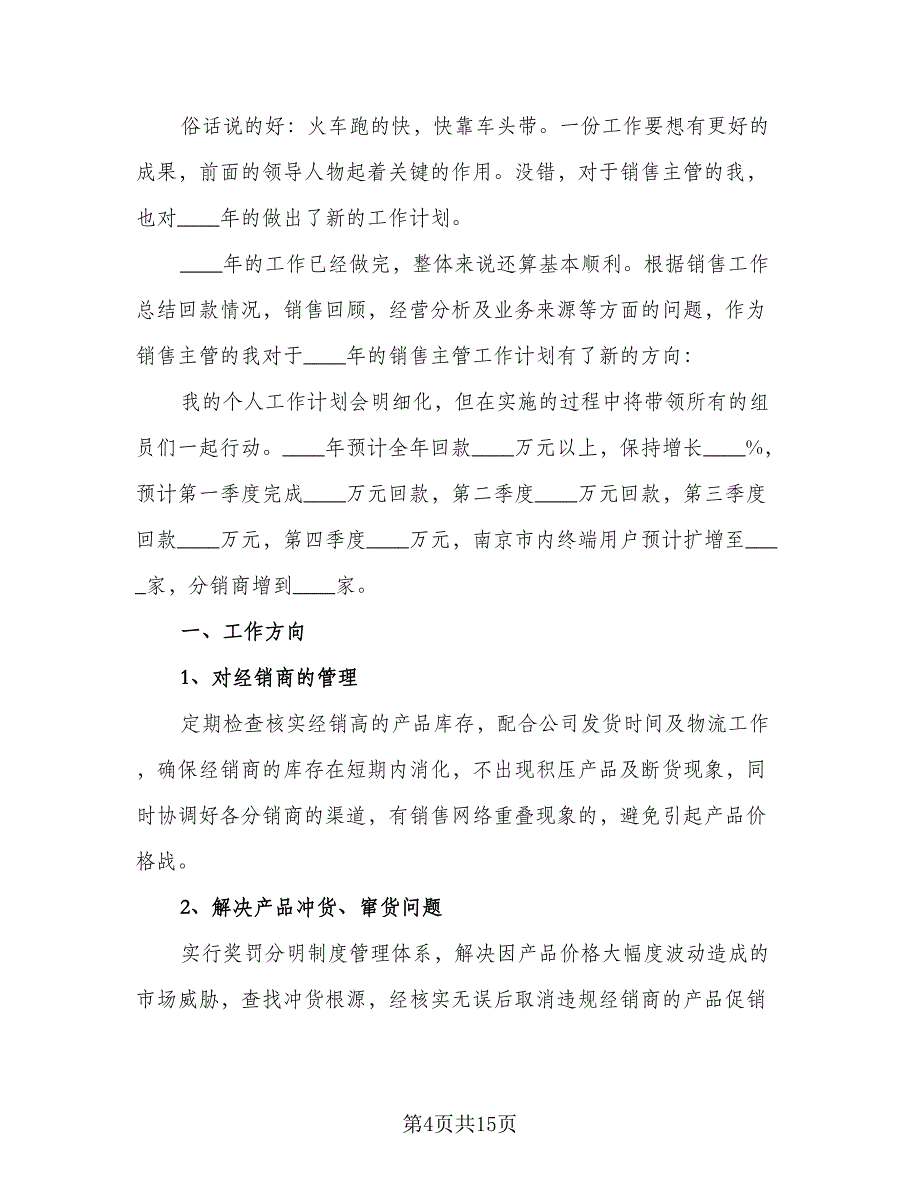 俗话说的好：火车跑的快，快靠车头带。一份工作要想有更好的
成果，前面的领导人物起着关键的作用。没错，对于销售主管的我，
也对____年的做出了新的工作计划。
____年的工作已经做完，整体来说还算基本顺利。根据销售工作
总结回款情况，销售回顾，经营分析及业务来源等方面的问题，作为
销售主管的我对于____年的销售主管工作计划有了新的方向：
我的个人工作计划会明细化，但在实施的过程中将带领所有的组
员们一起行动。____年预计全年回款____万元以上，保持增长____%，
预计第一季度完成____万元回款，第二季度____万元回款，第三季度
回款____万元，第四季度____万元，南京市内终端用户预计扩增至___
_家，分销商增到____家。
一、工作方向
1、对经销商的管理
定期检查核实经销高的产品库存，配合公司发货时间及物流工作
，确保经销商的库存在短期内消化，不出现积压产品及断货现象，同
时协调好各分销商的渠道，有销售网络重叠现象的，避免引起产品价
格战。
2、解决产品冲货、窜货问题
实行奖罚分明制度管理体系，解决因产品价格大幅度波动造成的
市场威胁，查找冲货根源，经核实无误后取消违规经销商的产品促销
第4页共15页